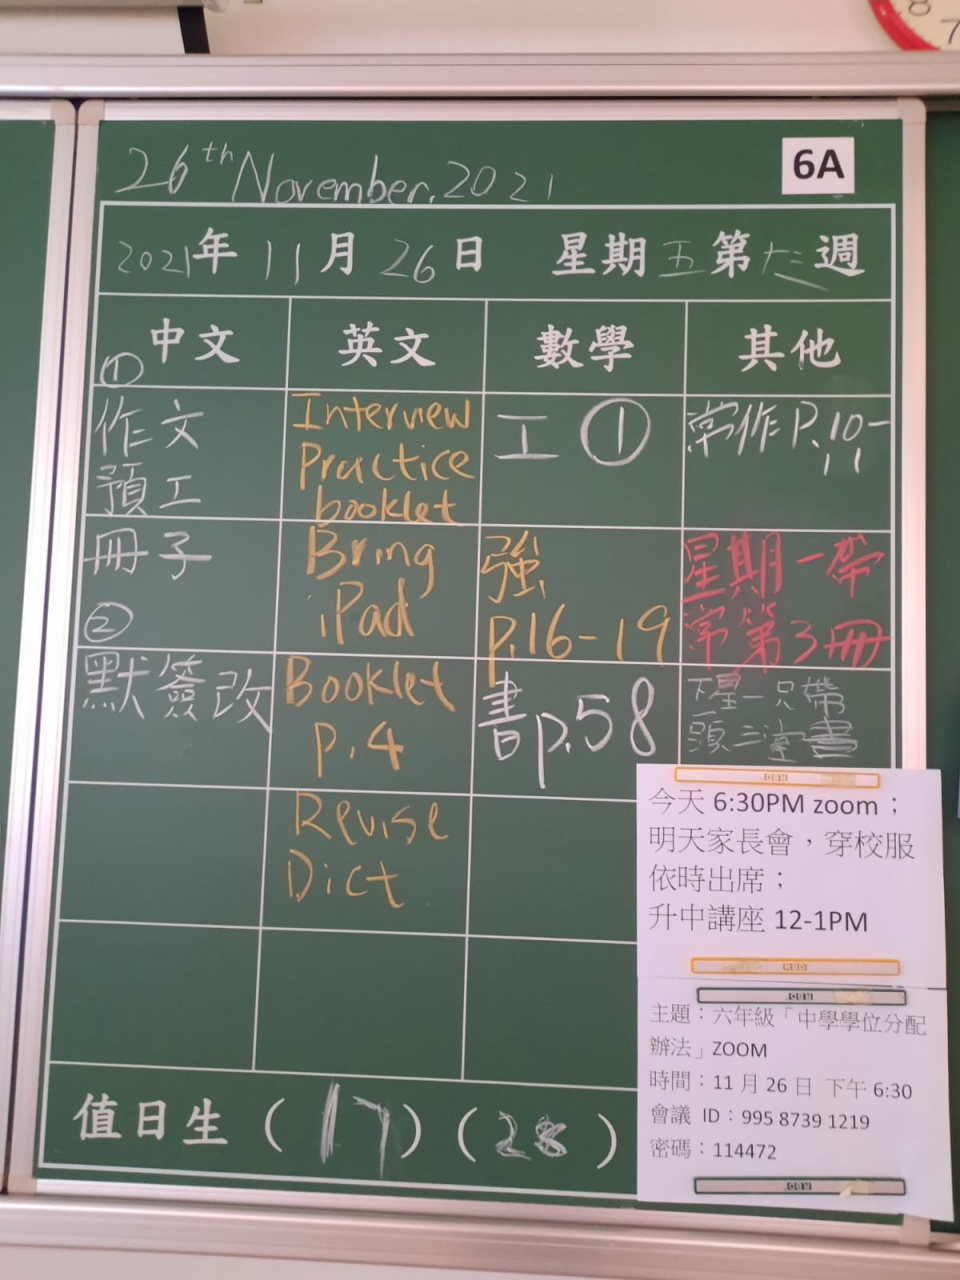 26th November, 2021
6A
2021年 11月 26日 星期五第十二週
中文
英文
數學
其他
①
作文
預工
冊子
②
默簽改
Interview
Practice
booklet
Bring
iPad
Booklet
p.4
Revise
Dict
工①
強
p.16-19
書p.58
常作P.10-
11
星期一帶
常第3冊
下星一只帶
頭三堂書
今天 6:30PM zoom；
明天家長會，穿校服
依時出席；
升中講座 12-1PM
主題：六年級「中學學位分配
辦法」ZOOM
時間：11 月 26 日 下午 6:30
會議 ID：995 8739 1219
密碼：114472
值日生 (17) (28)
8
7